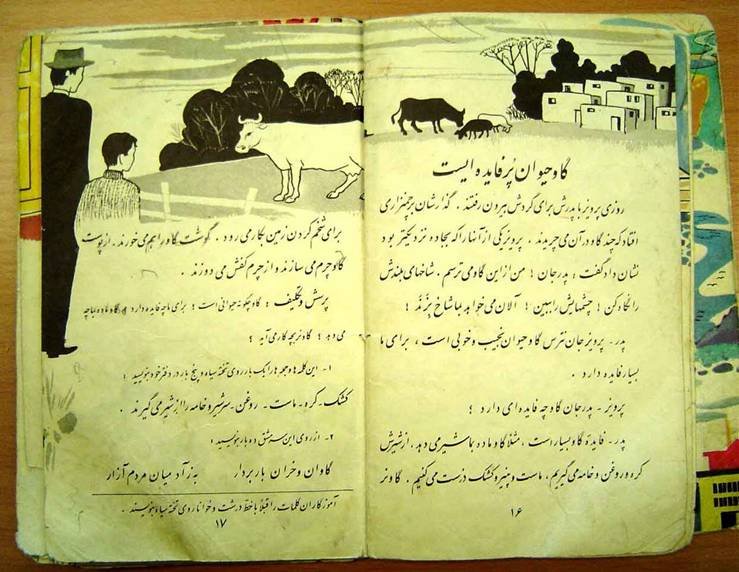 گاو حیوان پُر فایده ایست
روزی پرویز با پدرش برای گردش بیرون رفتند . گذارشان بچمنزاری
افتاد که چند گاو در آن می چریدند . پرویز یکی از آنها را که بجاده نزدیکتر بود
نشان داد گفت : پدر جان ! من از این گاو می ترسم ، شاخهای بلندش
را نگاه کن ؛ چشمهایش را ببین ! الان می خواهد بما شاخ بِزَنَدْ !
پدر - پرویز جان نترس گاو حیوان نجیب و خوبی است ، برای ما
بسیار فایده دارد .
پرویز - پدر جان گاو چه فایده ای دارد ؟
پدر - فایدهٔ گاو بسیار است ، مثلاً گاو ماده بما شیر می دهد . از شیرش
کره و روغن و خامه می گیریم ، ماست و پنیر و کشک درست می کنیم . گاو نر
۱۶
برای شخم کردن زمین بکار می رود . گوشت گاو را هم می خورند . از پوست
گاو چرم می سازند و از چرم کفش می دوزند .
پرسش و تکلیف : گاو چگونه حیوانی است ؟ برای ما چه فایده دارد ؟ گاو ماده بما چه
می دهد ؟ گاو نر بچه کار می آید ؟
۱- این کلمه ها و جمله ها را یک بار روی تخته سیاه و پنج بار در دفتر خود بنویسید :
کشک - کره - ماست - روغن - سرشیر و خامه را از شیر می گیرند .
۲- از روی این سرمشق ده بار بنویسید :
گاوان و خران بار بردار    به ز آدمیان مردم آزار
آموزگاران کلمات را قبلاً با خط درشت و خوانا روی تخته سیاه بنویسند .
۱۷